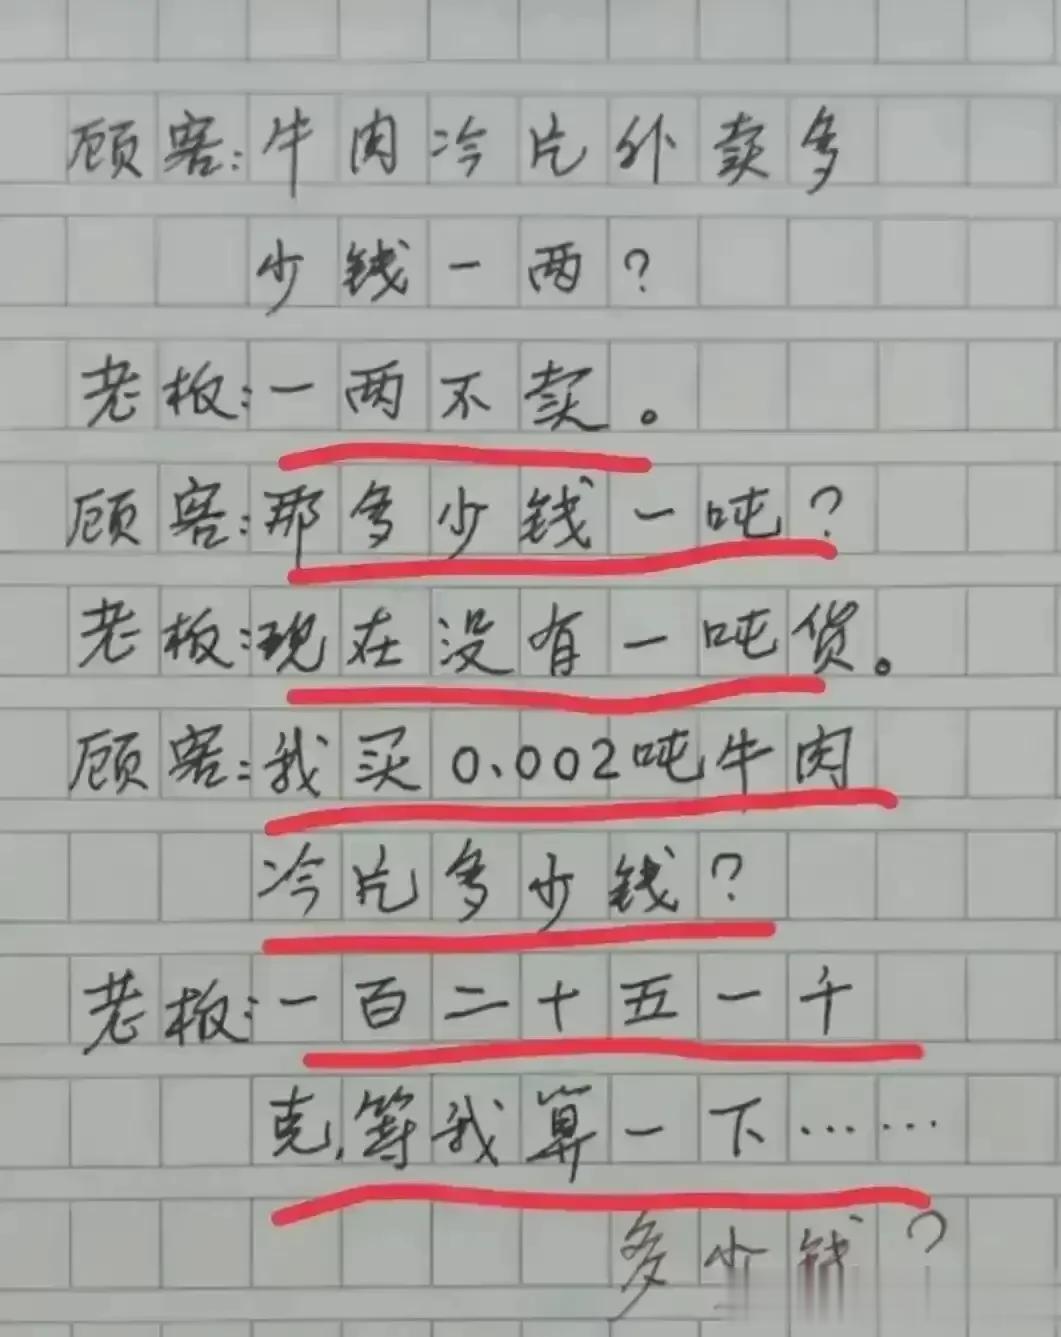 顾客:牛肉冷片外卖多
少钱一两?
老板:一两不卖。
顾客:那多少钱一吨?
老板:现在没有一吨货。
顾客:我买0.002吨牛肉
冷片多少钱?
老板:一百二十五一千
克,等我算一下……
多少钱?